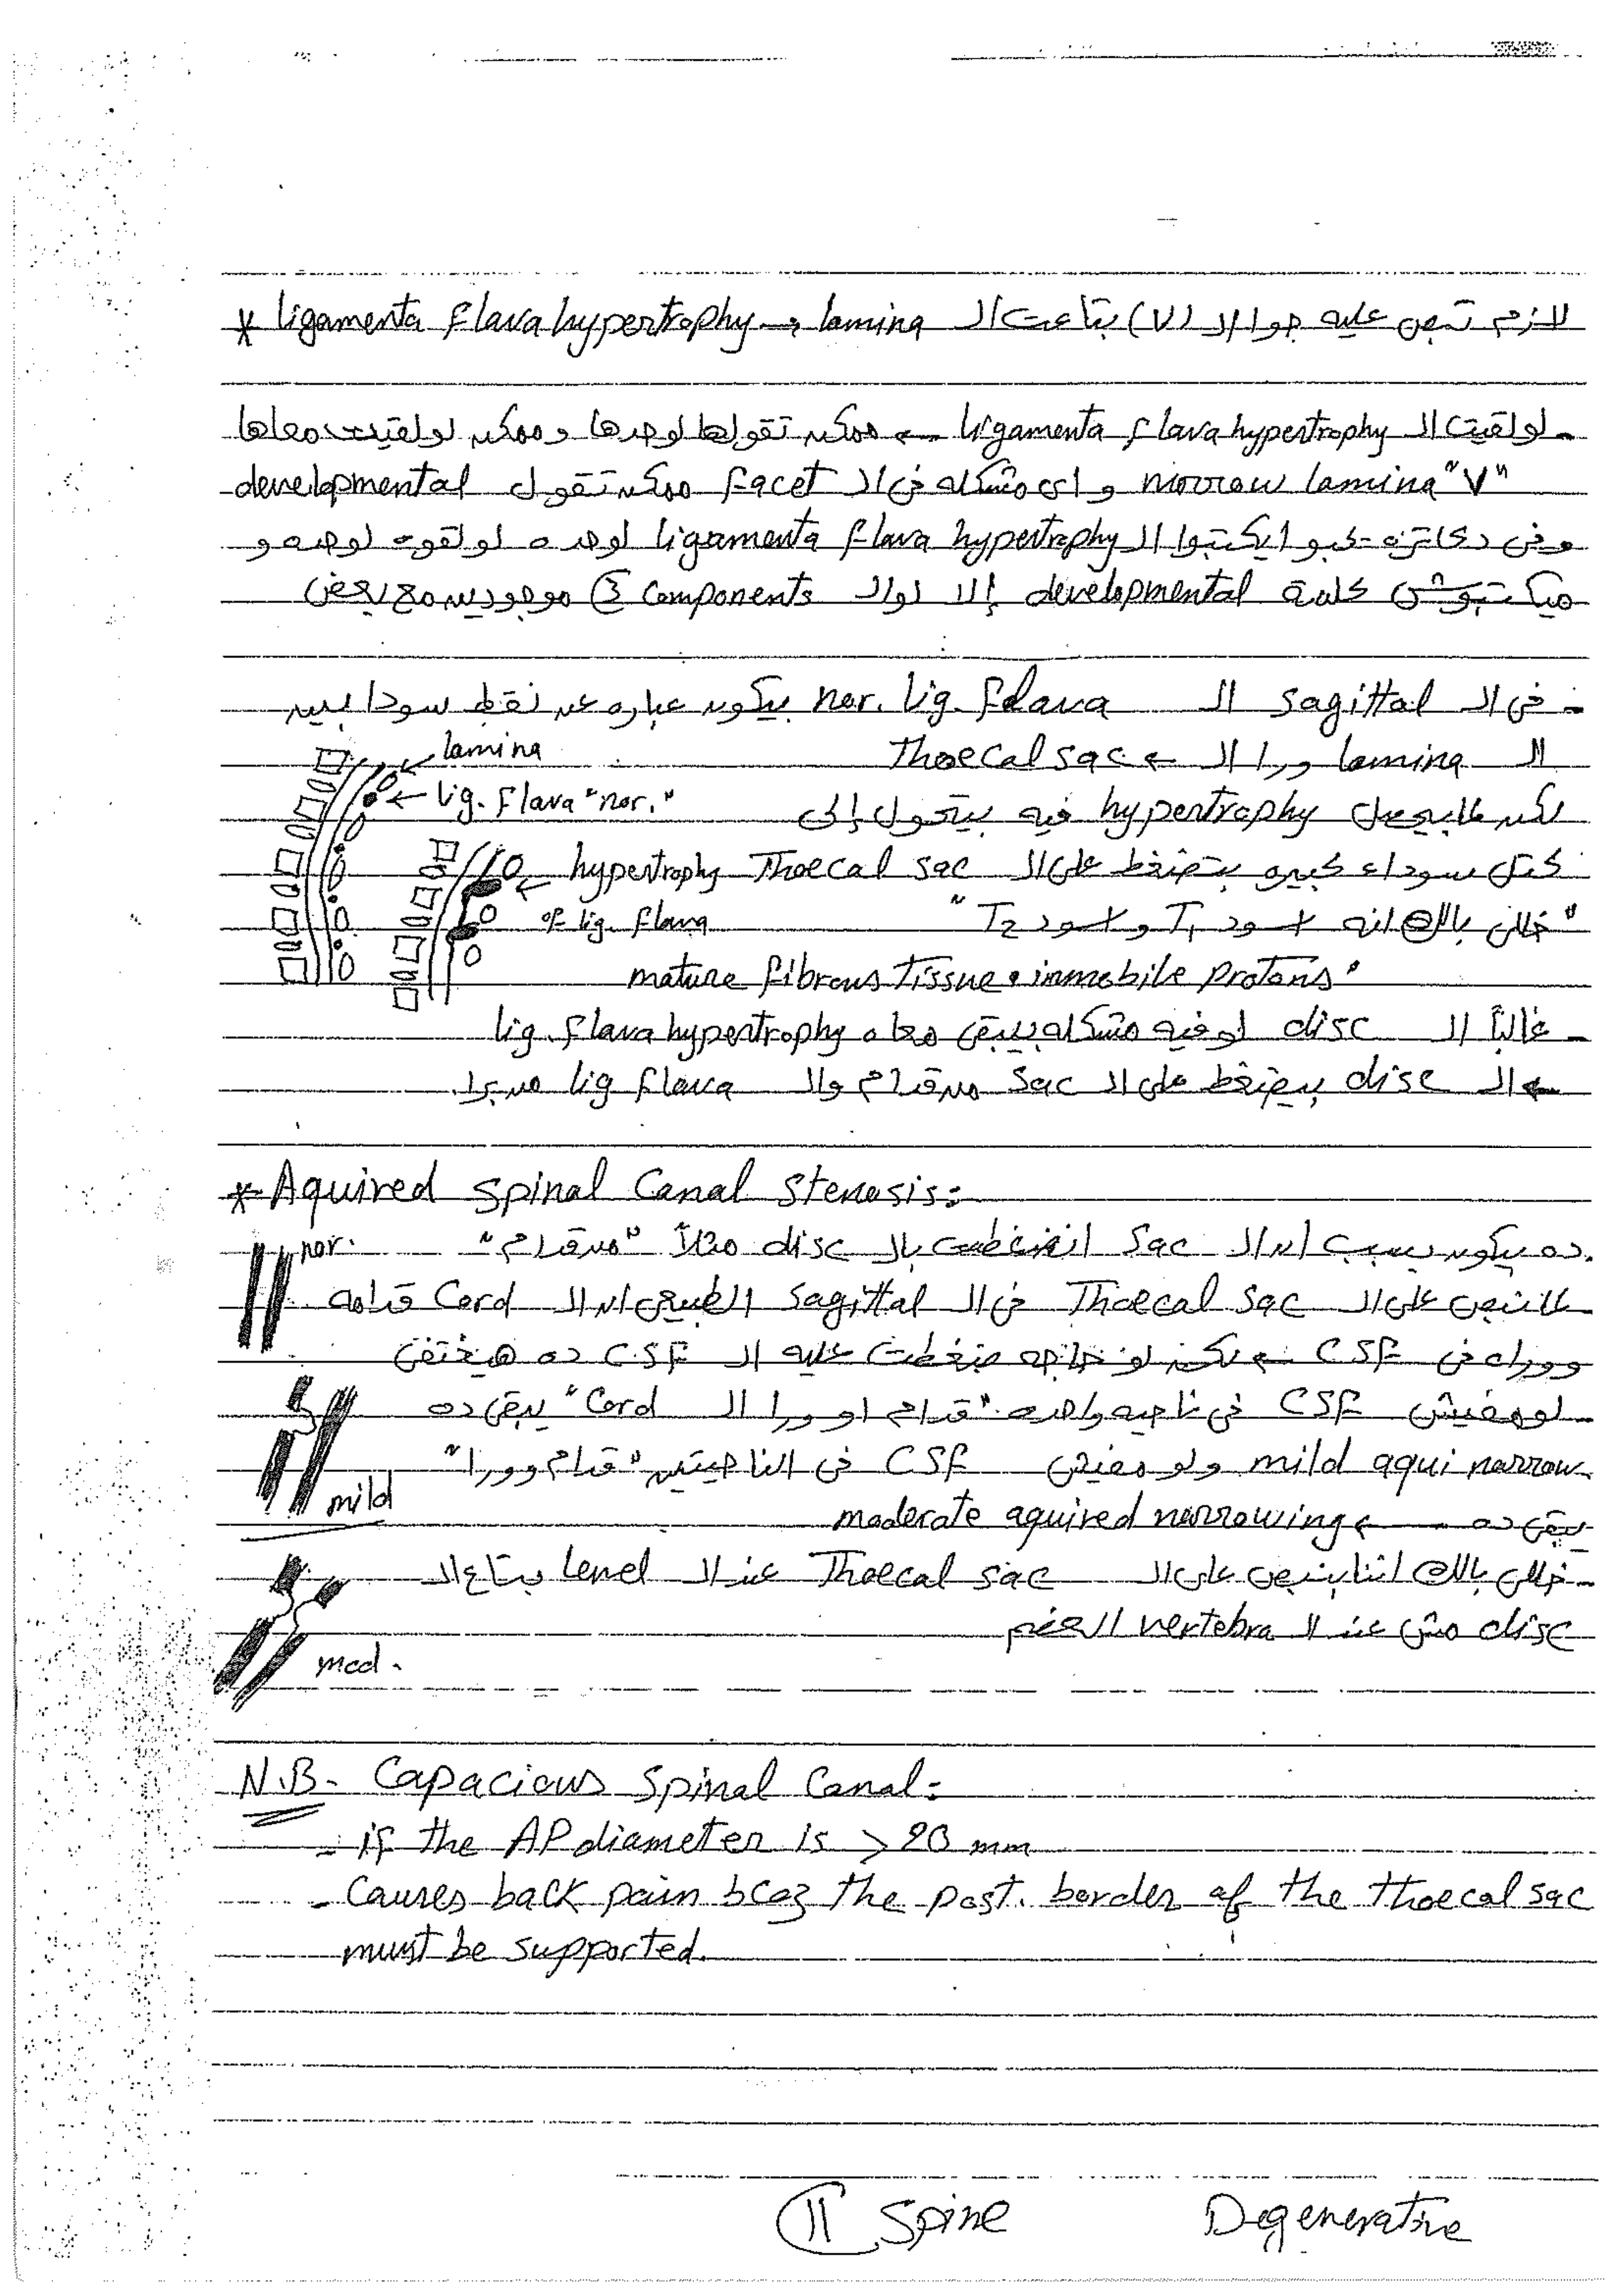 * ligamenta flava hypertrophy → لازم تبص عليه جوا الـ (V) بتاعت الـ lamina
- لو لقيت الـ ligamenta flava hypertrophy ← ممكن تقولها لوحدها وممكن لو لقيت معاها
narrow lamina "V" و اى مشكله فى الـ facet ممكن تقول developmental
وفى دكاتره يكتبوا الـ ligamenta flava hypertrophy لوحده لو لقوه لوحده و
ميكتبوش كلمة developmental إلا لو الـ 3 components موجودين مع بعض
- فى الـ sagittal الـ nor. lig. flava بيكون عباره عن نقط سودا بين
الـ lamina ورا الـ ← Thoecal sac
lamina
lig. flava "nor."
لكن لما بيحصل hypertrophy فيه بيتحول إلى
كتل سوداء كبيره بتضغط على الـ Thoecal sac
hypertrophy of lig. flava
"خلى بالك انه اسود T1 و اسود T2"
mature fibrous tissue • immobile protons"
- غالباً الـ disc لو فيه مشكله بيبقى معاه lig. flava hypertrophy
← الـ disc بيضغط على الـ sac من قدام والـ lig flava من ورا.
* Aquired spinal Canal Stenosis:
nor.
ده بيكون بسبب ان الـ sac اتضغطت بالـ disc مثلاً "من قدام"
لما تبص على الـ Thoecal sac فى الـ sagittal الطبيعى ان الـ Cord قدامه
ووراه فى CSF ← لكن لو حاجه ضغطت عليه الـ CSF ده هيختفى
- لو مفيش CSF فى ناحيه واحده "قدام او ورا الـ Cord" يبقى ده
mild aqui narrow. ولو مفيش CSF فى الناحيتين "قدام وورا"
mild
يبقى ده ← moderate aquired narrowing
- خلى بالك اننا بنبص على الـ Thoecal sac عند الـ level بتاع الـ
disc مش عند الـ vertebra العضم
mod.
N.B- Capacious Spinal Canal:
- if the AP diameter is > 20 mm
- Causes back pain bcoz the post. border of the thoecal sac
must be supported.
11 Spine Degenerative